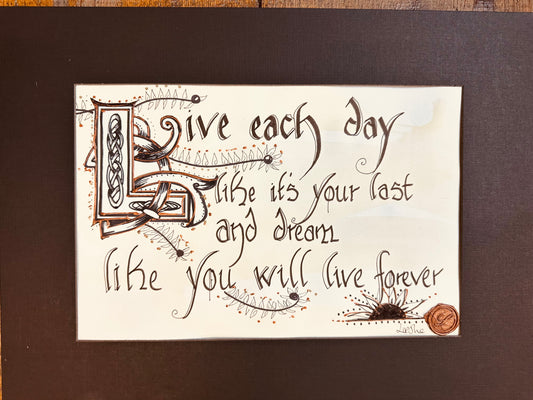 Live each day
like it's your last
and dream
like you will live forever